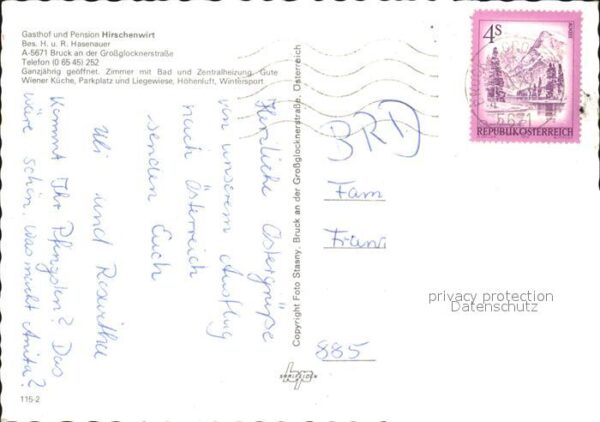 Gasthof und Pension Hirschenwirt
Bes. H. u. R. Hasenauer
A-5671 Bruck an der Großglocknerstraße
Telefon (0 65 45) 252
Ganzjährig geöffnet. Zimmer mit Bad und Zentralheizung. Gute
Wiener Küche, Parkplatz und Liegewiese, Höhenluft, Wintersport
Herzliche Ostergrüße
von unserem Ausflug
nach Österreich
senden Euch
Uli und Roswitha
Kommt Ihr Pfingsten? Das
wäre schön. Was macht Anita?
115-2
Copyright Foto Stasny, Bruck an der Großglocknerstraße, Österreich
4S
REPUBLIK ÖSTERREICH
5671
BRD
Fam
Fran
885
privacy protection
Datenschutz